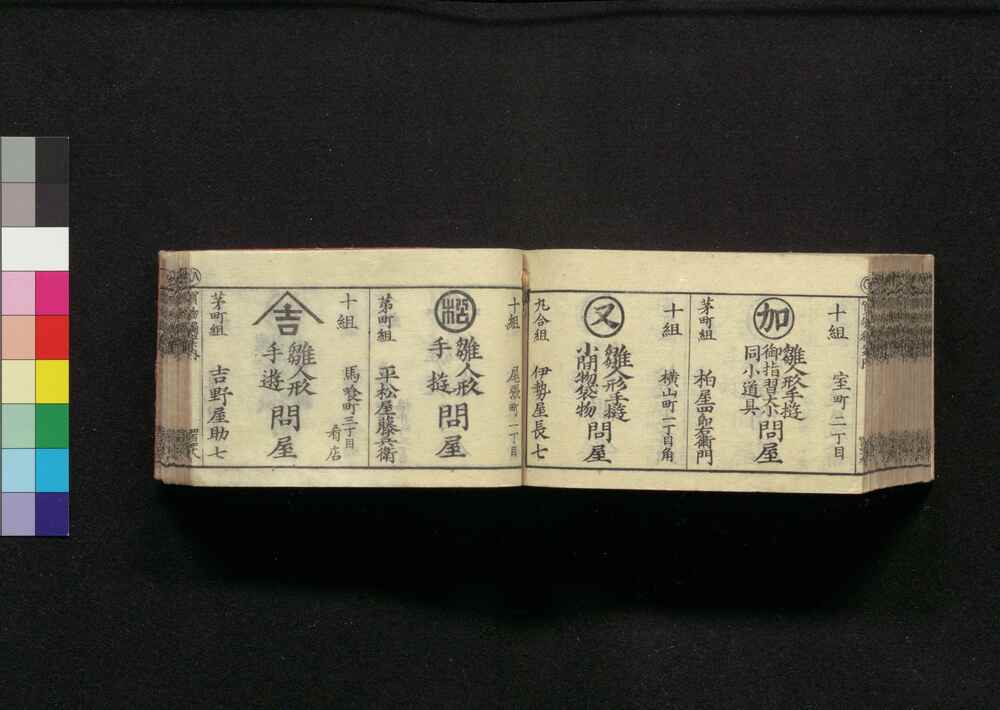 十組
室町二丁目
加
雛人形手遊
御指習太小
同小道具
問屋
茅町組
柏屋四郎右衛門
十組
横山町一丁目角
又
雛人形手遊
小間物袋物
問屋
九合組
伊勢屋長七
十組
尾張町一丁目
松
雛人形
手遊
問屋
茅町組
平松屋藤兵衛
十組
馬喰町三丁目
肴店
吉
雛人形
手遊
問屋
茅町組
吉野屋助七